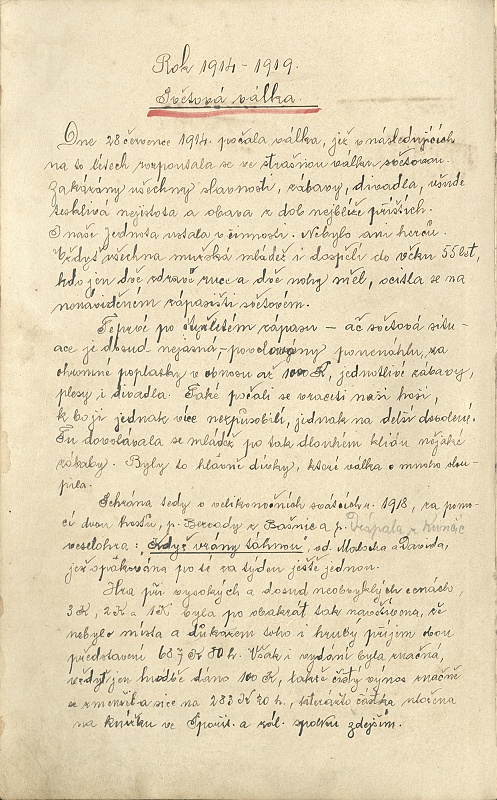 Rok 1914 - 1919.
Světová válka.
Dne 28 července 1914. počala válka, jež v následujících
na to létech rozpoutala se ve strašnou válku světovou.
Zakázány všechny slavnosti, zábavy, divadla, všude
tesklivá nejistota a obava z dob nejblíže příštích.
I naše Jednota ustala v činnosti. Nebylo ani herců.
Vždyť všechna mužská mládež i dospělí do věku 55 let,
kdo jen dvě zdravé ruce a dvě nohy měl, ocitla se na
nenáviděném zápasišti světovém.
Teprvé po čtyřletém zápasu – ač světová situ-
ace je dosud nejasná, – povolovány ponenáhlu, za
ohromné poplatky v obnosu až 1000 K, jednotlivé zábavy,
plesy i divadla. Také počali se vraceti naši hoši,
k boji jednak více nezpůsobilí, jednak na delší dovolenou.
Tu dovolávala se mládež po tak dlouhém klidu nějaké
zábavy. Byly to hlavně dívky, které válka o mnoho olou-
pila.
Sehrána tedy o velikonočních svátcích r. 1918, za pomo-
ci dvou hostů, p. Beroady z Bašnic a p.
veselohra: „Když vrány táhnou", od Malocha a Davida,
jež opakována po té za týden ještě jednou.
Hra při vysokých a dosud neobvyklých cenách,
3 K, 2 K a 1 K byla po obakrát tak navštívena, že
nebylo místa a důkazem toho i hrubý příjem obou
představení 637 K 80 h. Však i vydání byla značná,
vždyť jen hudbě dáno 100 K, takže čistý výnos značně
se zmenšil a sice na 283 K 20 h., kterážto částka uložena
na knížku ve Spořit. a zál. spolku zdejším.